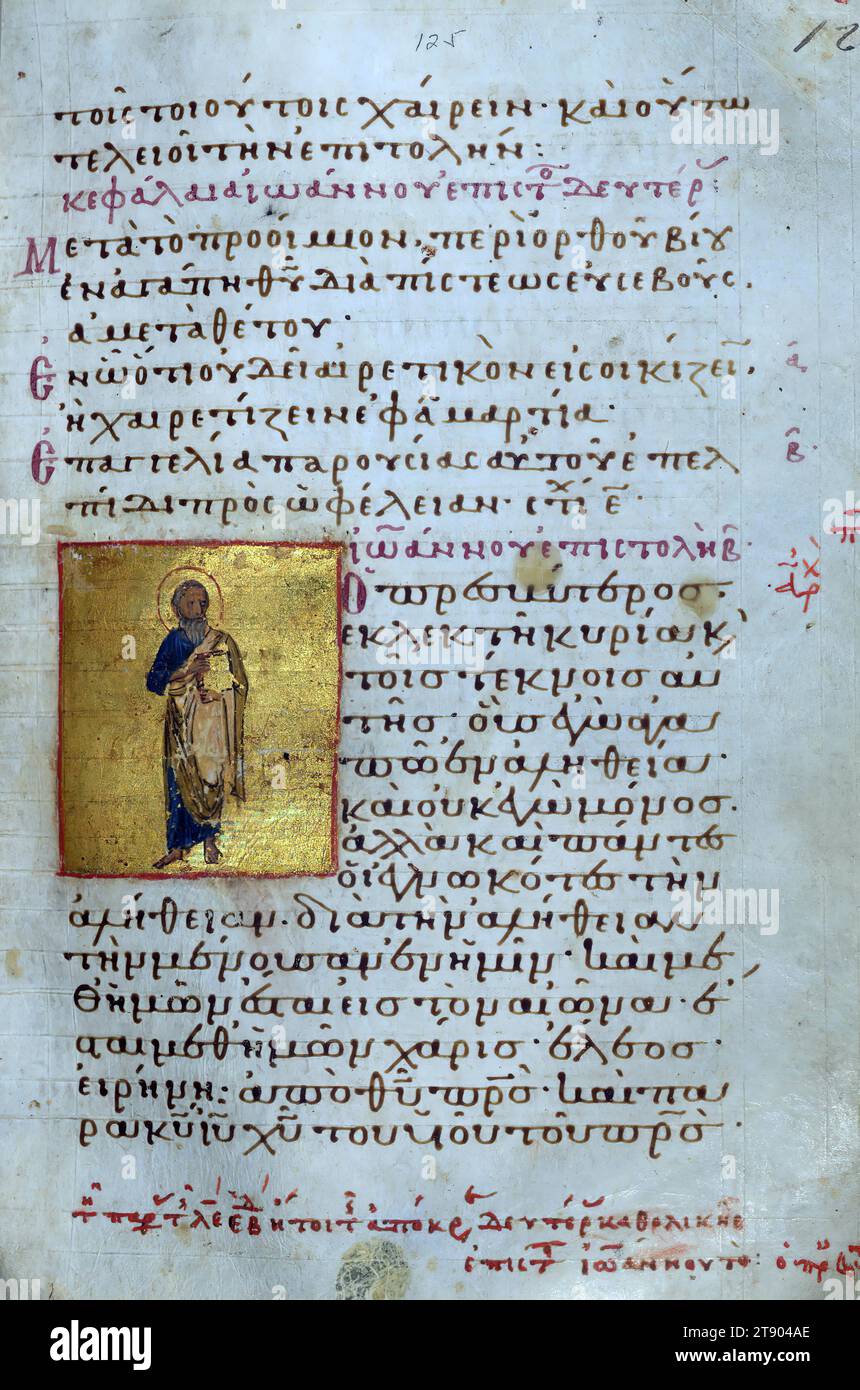 125
12
τοῖς τοιούτοις χαίρειν· καὶ οὕτω
τελειοῖ τὴν ἐπιτολήν:
κεφάλαια ἰωάννου ἐπιστο δευτέρ
Μετὰ τὸ προοίμιον, περὶ ὀρθοῦ βίου
ἐν ἀγάπη θυ διὰ πίστεως εὐσεβοῦς,
ἀμεταθέτου·
Ἐν ὧ ὅτι οὐ δεῖ αἱρετικὸν εἰσοικίζειν,
ἢ χαιρετίζειν ἐφ ἁμαρτία·
Ἐπαγγελία παρουσίας αὐτοῦ ἐπ ελ
πίδι πρὸς ὠφέλειαν·
ἰωάννου ἐπιστολὴ β
Ὁ πρεσβύτερος
ἐκλεκτῆ κυρία κ
τοῖς τέκνοις αυ
τῆς· οὓς ἐγὼ ἀγα
πῶ ἐν ἀληθεία·
καὶ οὐκ ἐγὼ μόνος.
ἀλλὰ καὶ πάντες
οἱ ἐγνωκότες τὴν
ἀλήθειαν· διὰ τὴν ἀλήθειαν
τὴν μένουσαν ἐν ἡμῖν· καὶ με
θ ἡμῶν ἔσται εἰς τὸν αἰῶνα· ἔ
σται μεθ ἡμῶν χάρις· ἔλεος·
εἰρήνη: ἀπὸ θυ πρσ· καὶ πα
ρα κυ ιυ χυ του υἱοῦ τοῦ πρσ·
ἐπιστ ἰωάννου τὸ: ὁ πρ
alamy
Image ID: 2T904AE
www.alamy.com